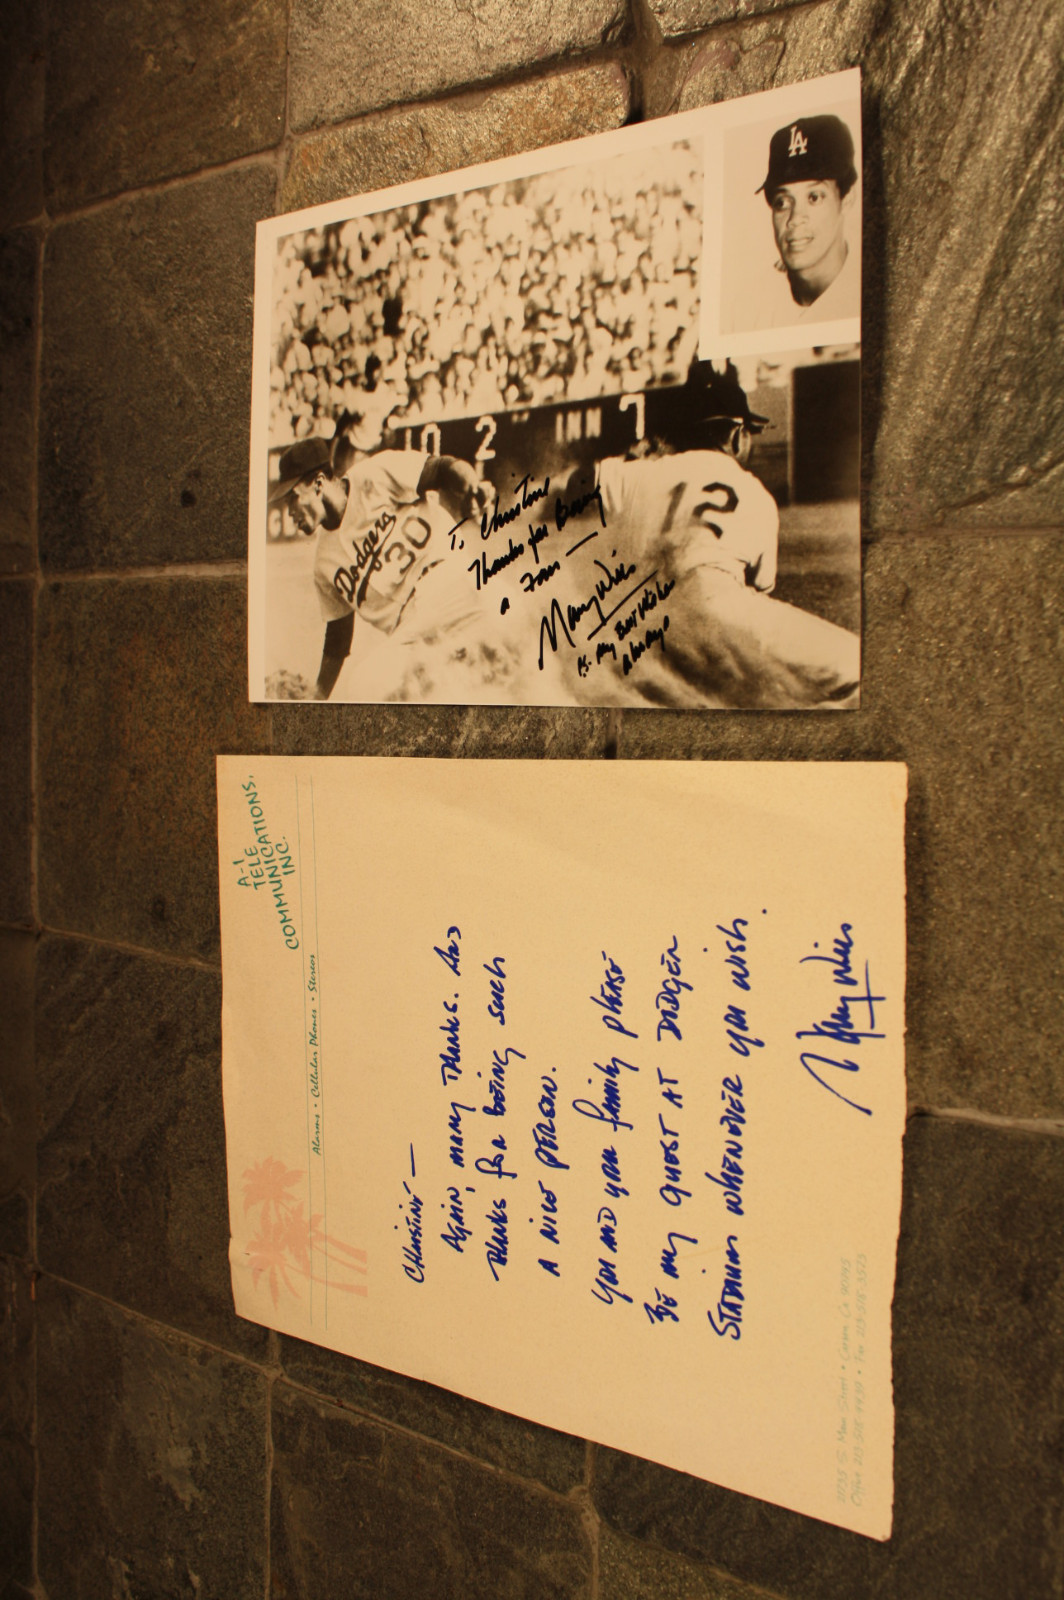 LA
10 2 INN 7
12
Dodgers
30
To Christine
Thanks for Being
a Fan —
Maury Wills
P.S. My Best Wishes
Always
A-1
TELE
COMMUNICATIONS,
INC.
Alarms • Cellular Phones • Stereos
CHRISTINE —
AGAIN, MANY THANKS. AND
THANKS FOR BEING SUCH
A NICE PERSON.
YOU AND YOUR FAMILY PLEASE
BE MY GUEST AT DODGER
STADIUM WHENEVER YOU WISH.
Maury Wills
S. Main Street • Carson, Ca 90745
Office 213-515-